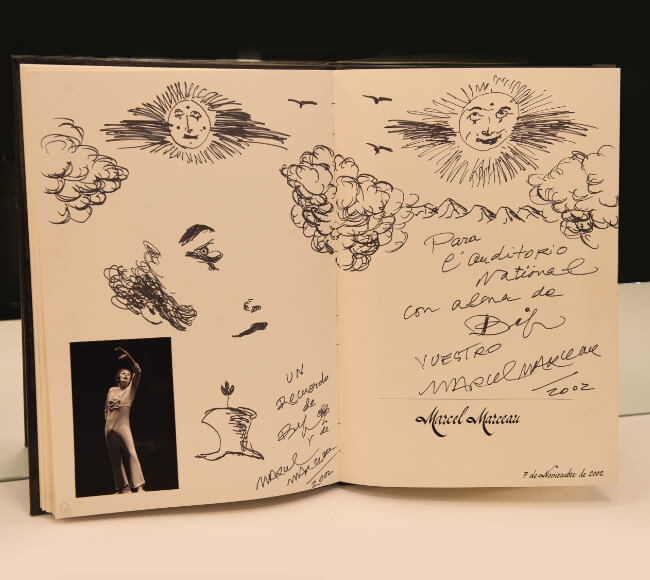 UN
Recuerdo
de
Bip
y de
MARCEL
MARCEAU
2002
Para
l'auditorio
National
con alma de
Bip
VUESTRO
MARCEL MARCEAU
2002
Marcel Marceau
7 de Noviembre de 2002